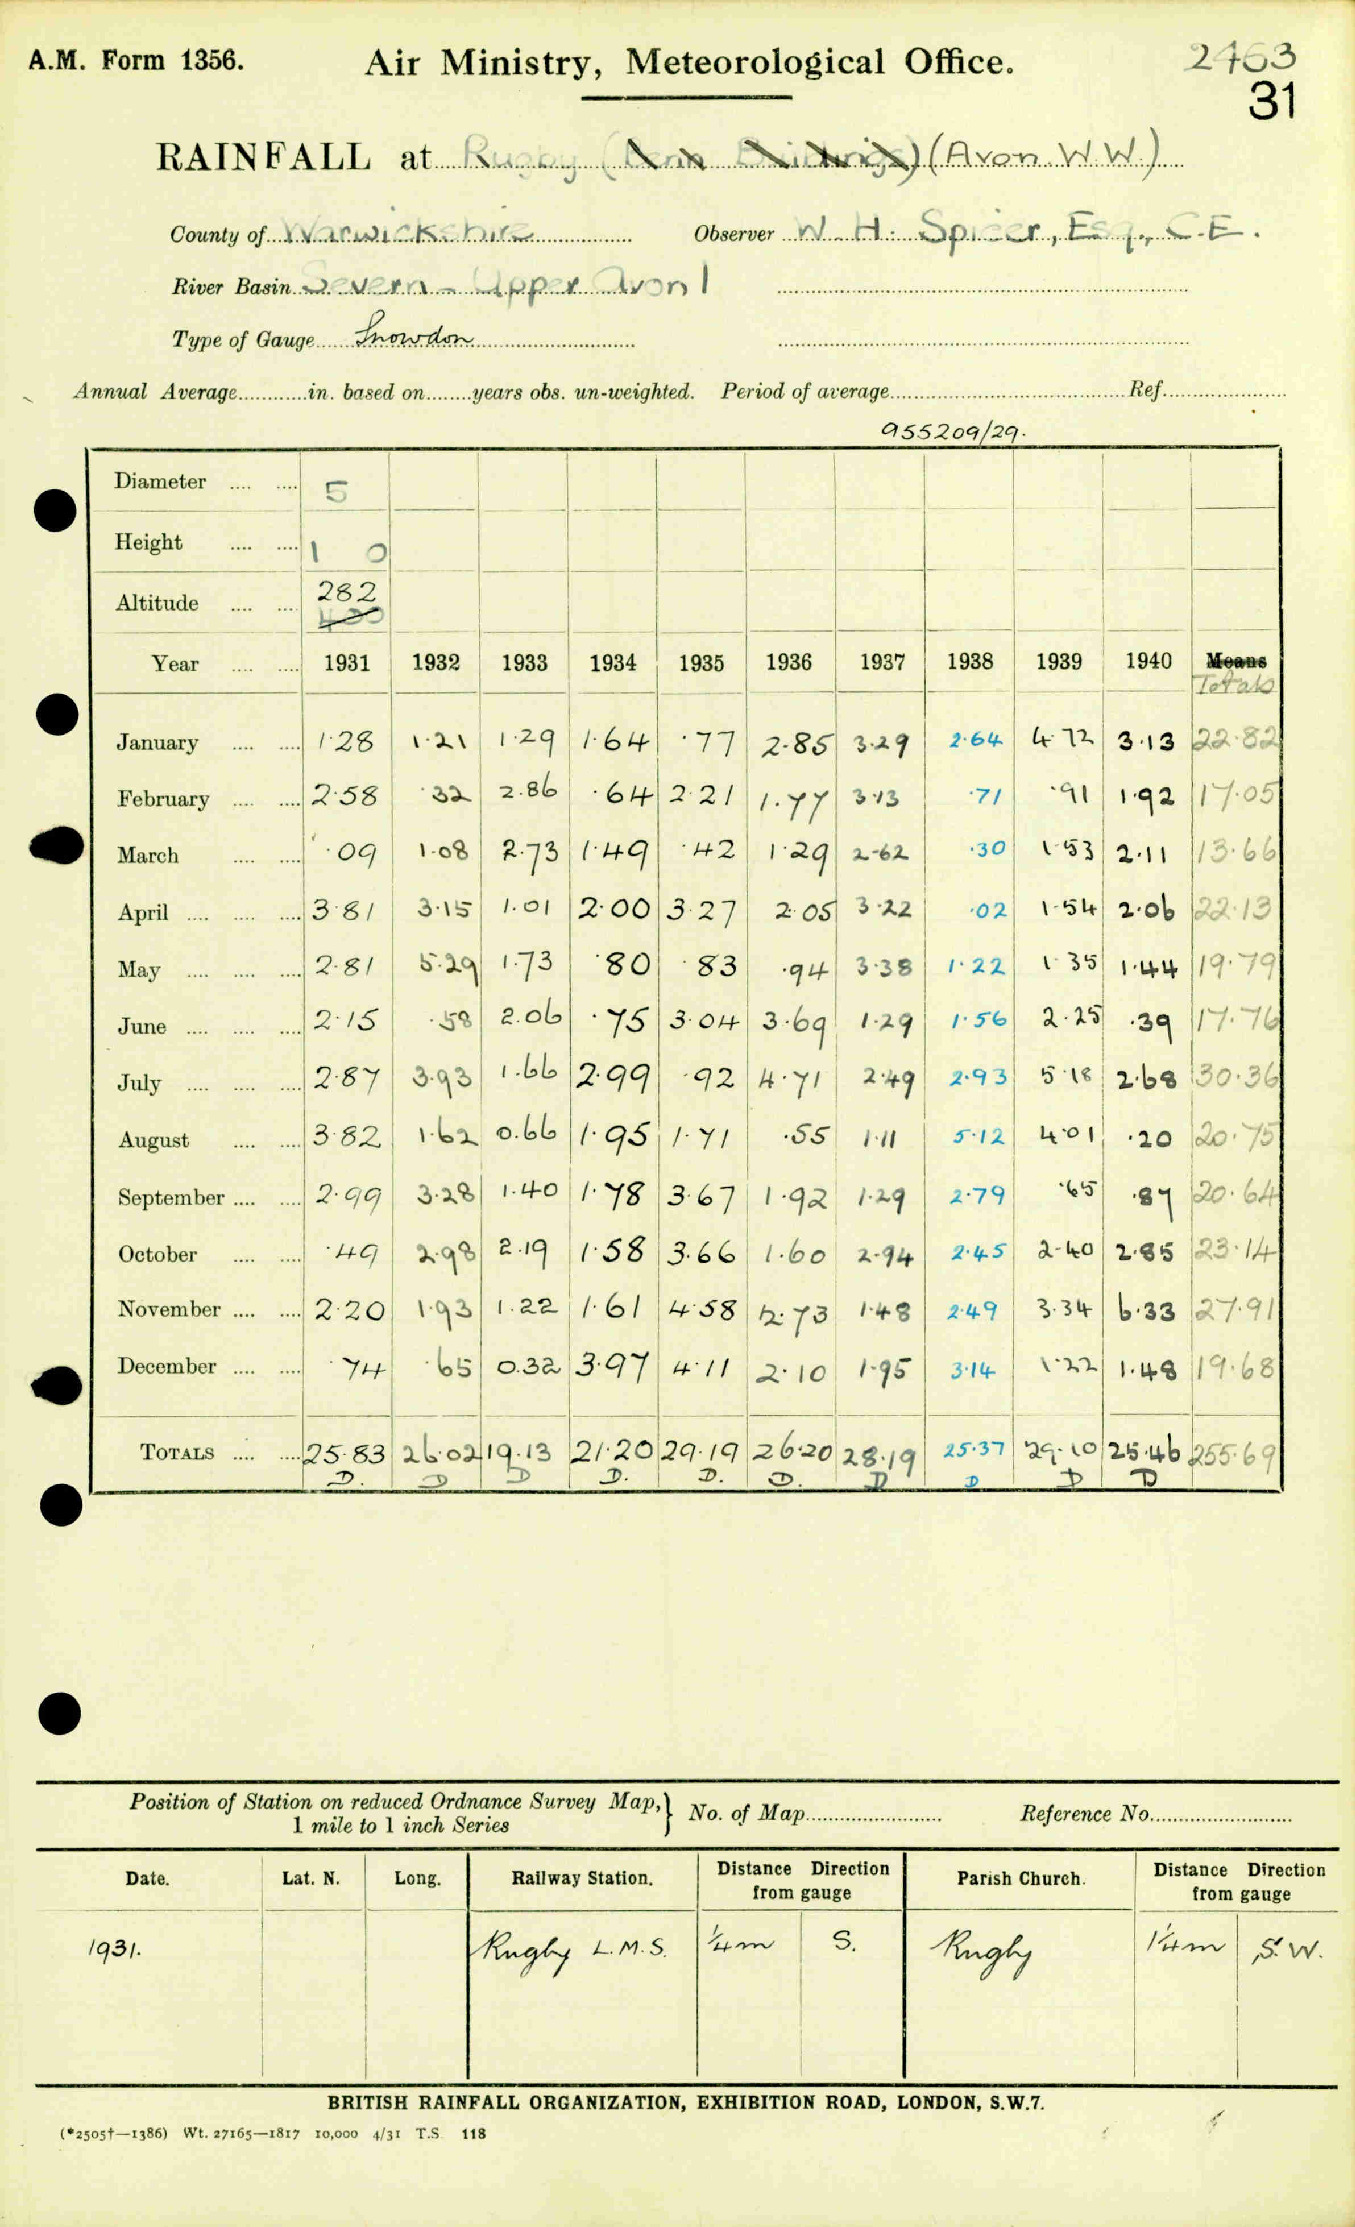 A.M. Form 1356. Air Ministry, Meteorological Office. 2463
31
RAINFALL at Rugby (Benn Buildings) (Avon W.W.)
County of Warwickshire Observer W. H. Spicer, Esq., C.E.
River Basin Severn - Upper Avon 1
Type of Gauge Snowdon
Annual Average in. based on years obs. un-weighted. Period of average Ref.
955209/29.
Diameter 5
Height 1 0
Altitude 282
400
Year 1931 1932 1933 1934 1935 1936 1937 1938 1939 1940 Means
Totals
January 1.28 1.21 1.29 1.64 .77 2.85 3.29 2.64 4.72 3.13 22.82
February 2.58 .32 2.86 .64 2.21 1.77 3.13 .71 .91 1.92 17.05
March .09 1.08 2.73 1.49 .42 1.29 2.62 .30 1.53 2.11 13.66
April 3.81 3.15 1.01 2.00 3.27 2.05 3.22 .02 1.54 2.06 22.13
May 2.81 5.29 1.73 .80 .83 .94 3.38 1.22 1.35 1.44 19.79
June 2.15 .58 2.06 .75 3.04 3.69 1.29 1.56 2.25 .39 17.76
July 2.87 3.93 1.66 2.99 .92 4.71 2.49 2.93 5.18 2.68 30.36
August 3.82 1.62 0.66 1.95 1.71 .55 1.11 5.12 4.01 .20 20.75
September 2.99 3.28 1.40 1.78 3.67 1.92 1.29 2.79 .65 .87 20.64
October .49 2.98 2.19 1.58 3.66 1.60 2.94 2.45 2.40 2.85 23.14
November 2.20 1.93 1.22 1.61 4.58 2.73 1.48 2.49 3.34 6.33 27.91
December .74 .65 0.32 3.97 4.11 2.10 1.95 3.14 1.22 1.48 19.68
TOTALS 25.83 26.02 19.13 21.20 29.19 26.20 28.19 25.37 29.10 25.46 255.69
D. D D D. D. D. D D D D
Position of Station on reduced Ordnance Survey Map, } No. of Map Reference No.
1 mile to 1 inch Series
Date. Lat. N. Long. Railway Station. Distance Direction from gauge Parish Church. Distance Direction from gauge
1931. Rugby L.M.S. ¼ m S. Rugby 1¼ m S.W.
BRITISH RAINFALL ORGANIZATION, EXHIBITION ROAD, LONDON, S.W.7.
(*2505†—1386) Wt. 27165—1817 10,000 4/31 T.S. 118